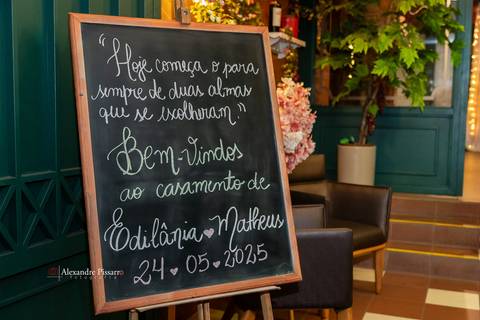 "Hoje começa o para
sempre de duas almas
que se escolheram."
Bem-Vindos
ao casamento de
Edilânia ♥ Matheus
24 ♥ 05 ♥ 2025
Alexandre Pissarro
fotografia